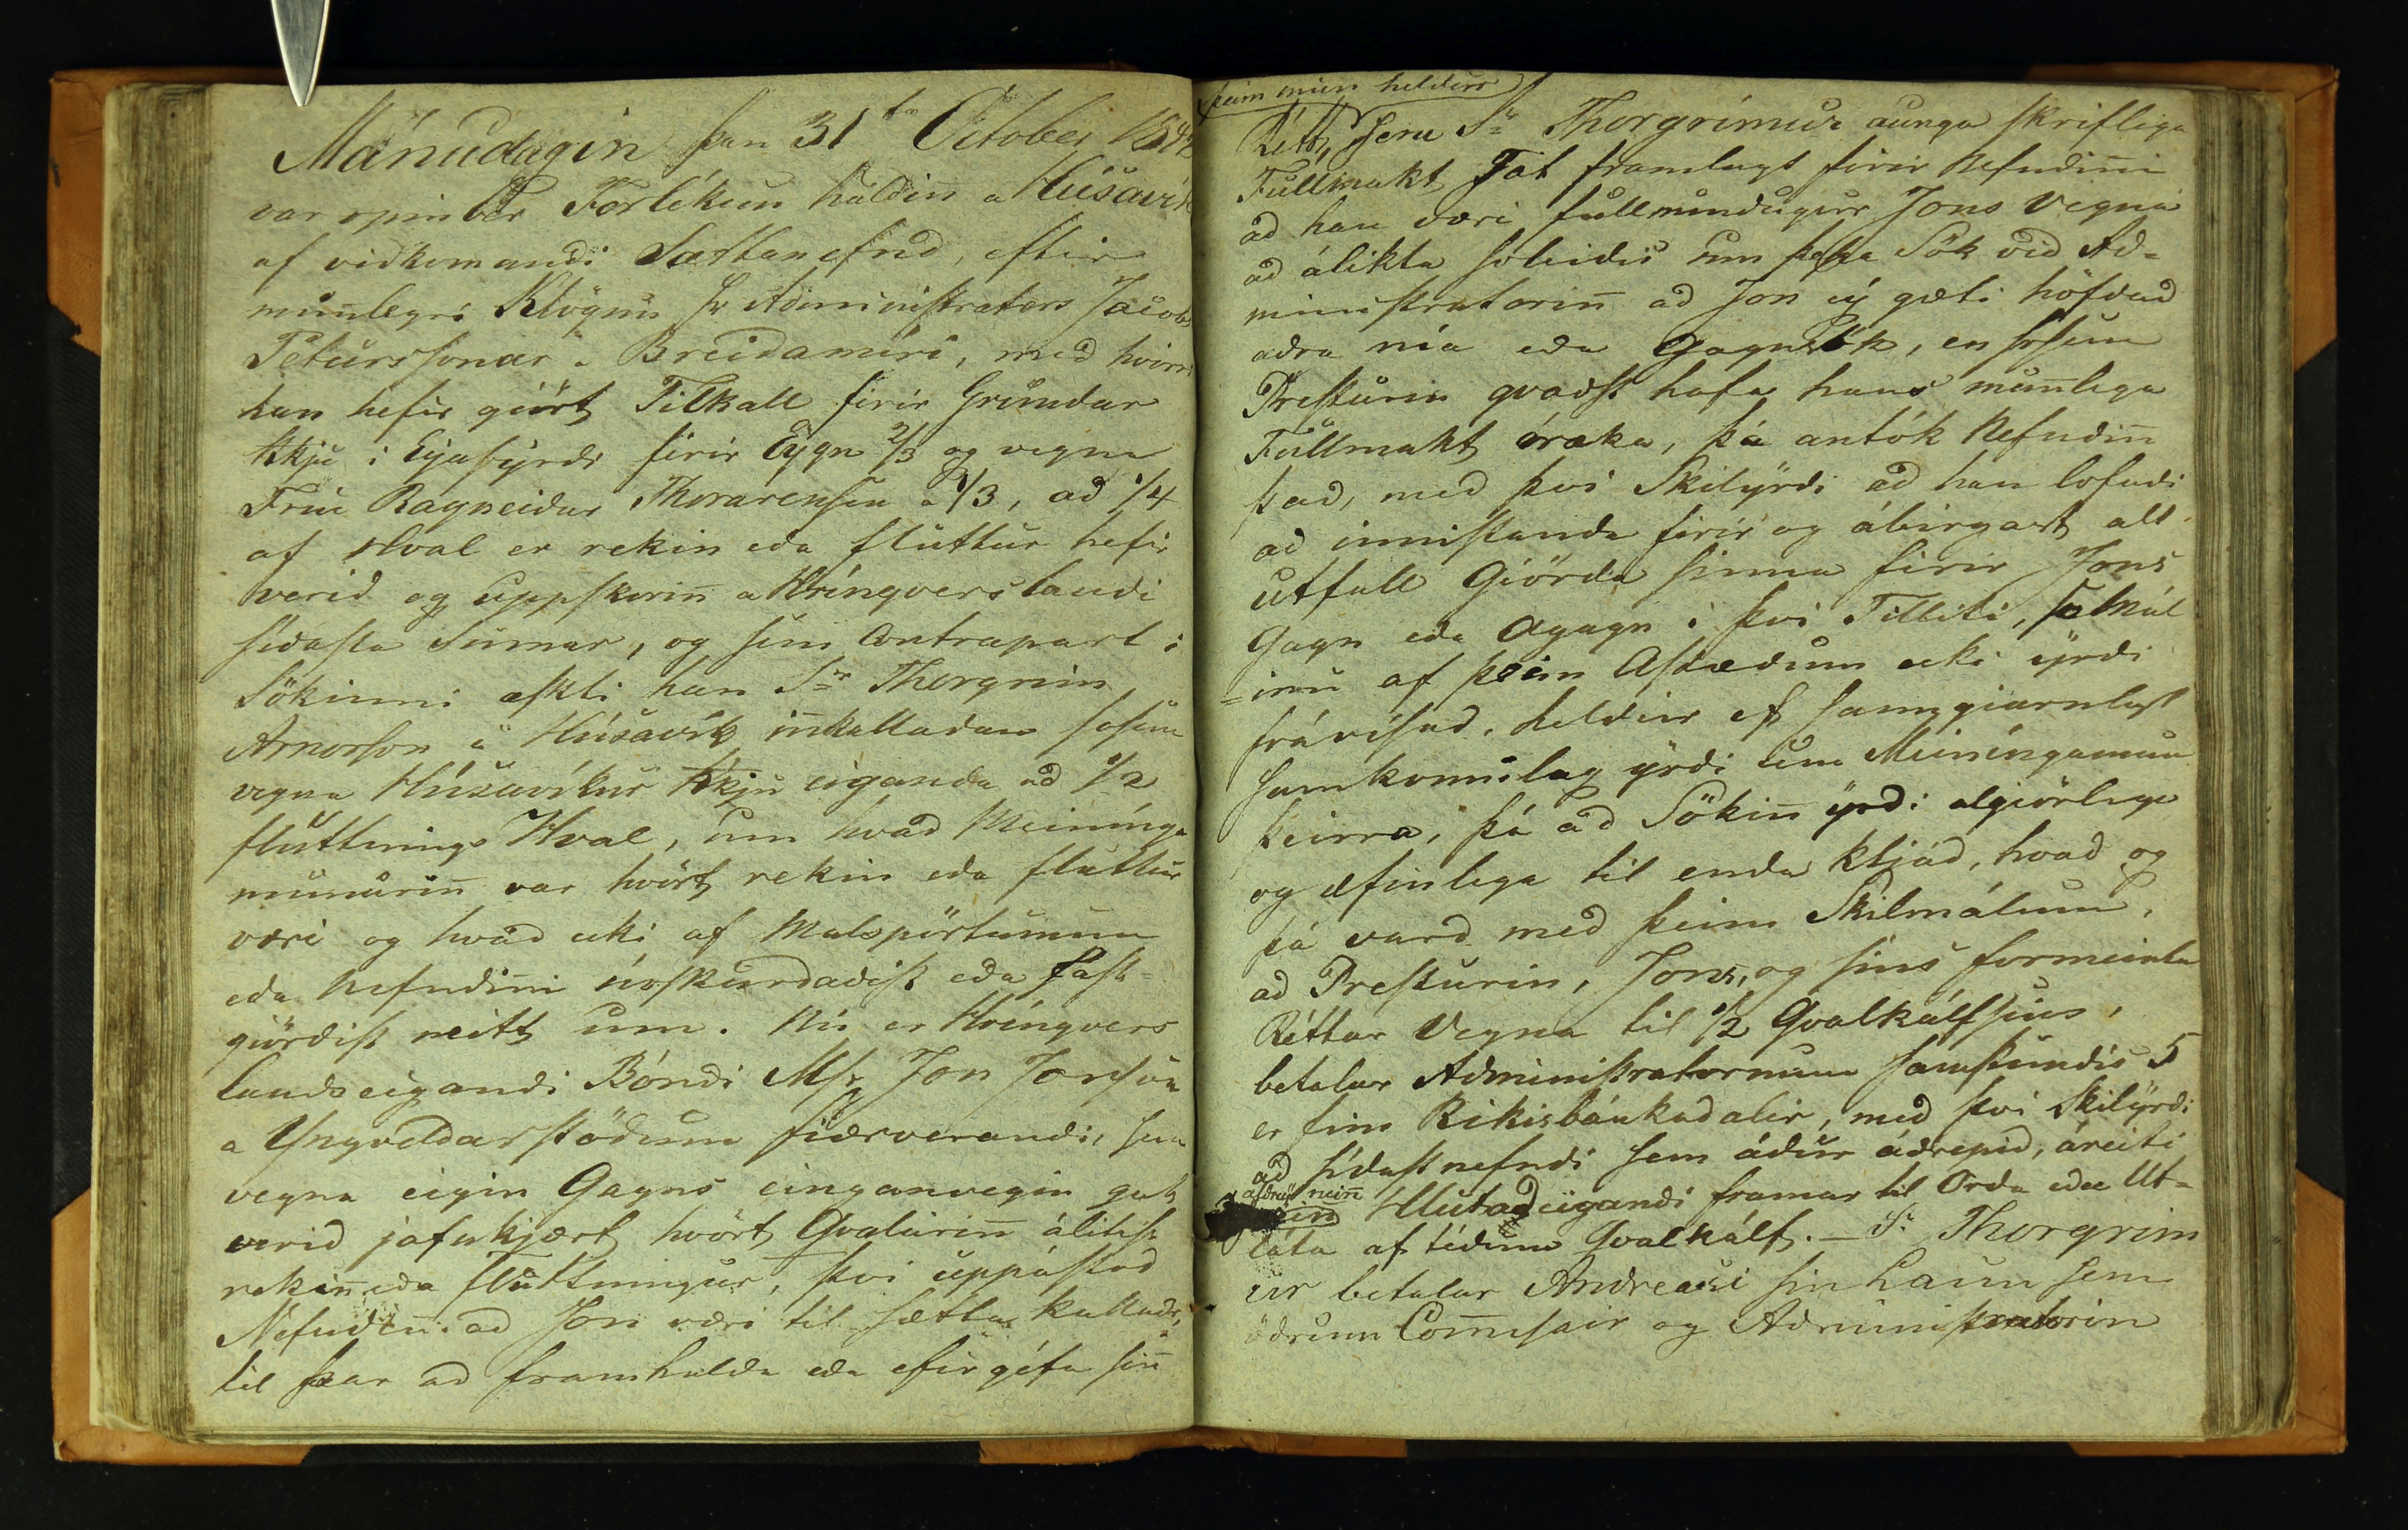 Mánudagin þan 31ta October 1842
var opinber Forlikun haldin a Húsavík
af viðkomandi Sættanefnd, eftir
munlegri Klögun hr Administrators Jacobs
Peturssonar á Breidamiri, med hvörri
han hefir giört Tilkall firir Grundar
kkju i Eyafyrdi firir Eign 2/3 og vegna
Frúe Ragneidar Thorarensen á 1/3, ad 1/4
af Hval er rekin eda fluttur hefir
verid og uppskorin̄ a Hringverslandi
sidasta Sumar, og sem Contrapart i
Sökinni æskti han Sr Thorgrim
Arnorsson á Húsavík in̄kalladan sosem
vegna Húsavíkur kkju eiganda ad 1/2
fluttnings Hval, um hvad Meininga
munurin̄ var hvört rekin eda fluttur
væri og hvad ecki af Malspörtunum
eda Nefndin̄i úrskurdadist eda fast-
giördist neitt um. Nú er Hringvers
lands eigandi Bóndi Msr Jon Jonsson
a Yngveldarstödum fiærverandi, sem
vegna eigin Gagns einganvegin gat
verid jafnkjært hvört Hvalurin̄ álitist
rekin̄ eda fluttningur, því uppástod
Nefndin̄ ad Jon væri til sætta kalladr,
til þar ad framhalda eda efirgefa sin̄
þeim mun heldur
Rétt, sem Sr Thorgrímur aunga skriflega
Fullmakt Fat framlagt firir Nefndin̄i
ad han væri fullmindugur Jons vegna
ad álikta soleidis um þessa Sök vid Ad-
ministratorin̄ ad Jon ey gæti höfdad
adra nía eda Gagnsök, en sosem
Presturin qvadst hafa hans mun̄lega
Fullmakt óræka, þá antók Nefndin̄
þad, med því Skilyrdi ad han lofadi
ad innistanda firir og ábirgast allt
utfall Giörda sinna firir Jons
Gagn eda Ogagn i þvi Tilliti, so Mál
=inu af þeim Astædum ecki yrdi
frávisad, heldur ef samgiarnlegt
samkomulag yrdi um Meiningamun
þeirra, þá ad Sökin̄ yrdi algiörlega
og æfinlega til enda kljád, hvad og
þá vard med þeim Skilmálum,
ad Presturin, Jons, og sins formeinta
Réttar Vegna til 1/2 Hvalkálfsins,
betalar Administratornum samstundis 5
er fim Rikisbánkadalir, med því Skilyrdi
ad sídastnefndi sem ádur ádrepid, áreiti
nein̄
Hlutadeigandi framar til Orda eda Ut-
láta af tédum Hvalkálf. — Sr Thorgrim
ur betalar Andreasi sin Laun sem
ödrum Com̄issair og Administratorin